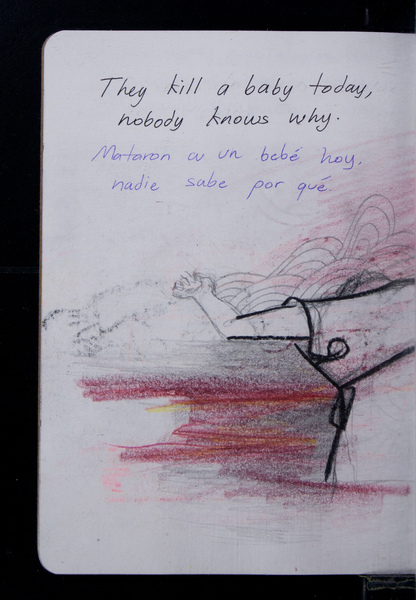 They kill a baby today,
nobody knows why.
Mataron a un bebé hoy,
nadie sabe por qué.